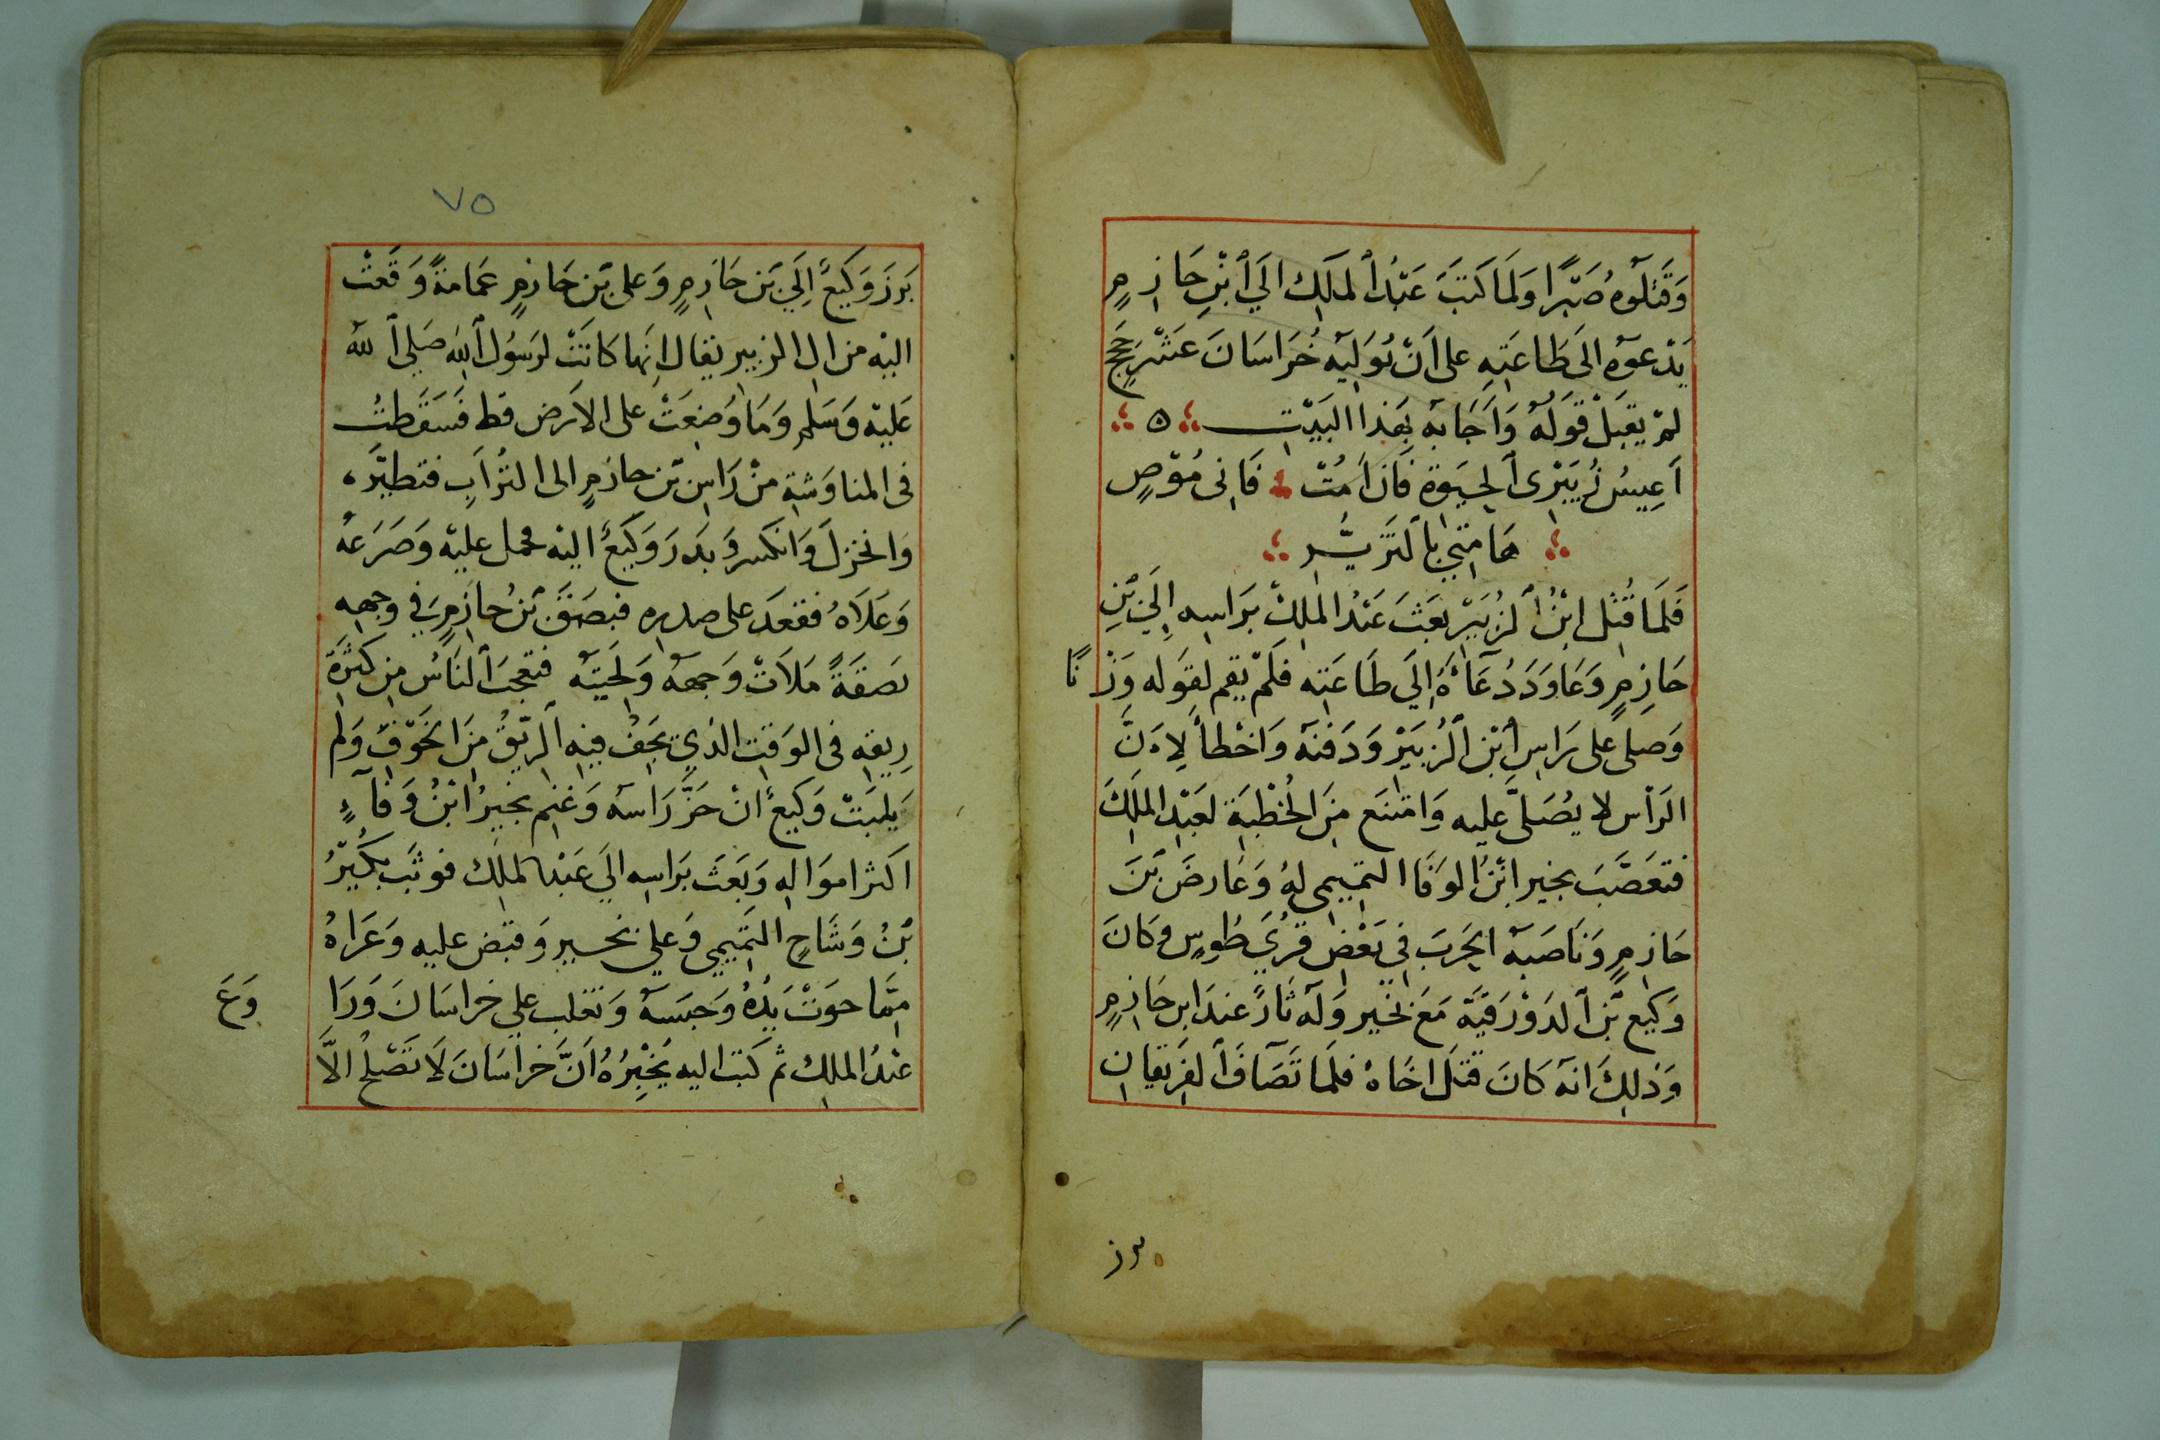 وَقَتَلُوهُ صَبْرًا وَلَمَا كَتَبَ عَبْدُ ٱلمَلِكِ الَي ٱبْنِ حَازِمٍ
يَدْعوهُ الَى طَاعَتِهِ على اَنْ يُوَلِيَه خُرَاسَانَ عَشْرَ حِجَجٍ
لَمْ يقبَلْ قَوْلَهُ وَاَجَابَه بِهَذا البَيْتِ ۵
اَعِيشُ زُبَيْرى ٱلحَيَوة فَاِن اَمُتْ فَاِنى مُوْصٍ
هَامَتِي بِٱلتَزَبُّرِ
فَلَمَا قُتِلَ ابْنُ ٱلزُبَيْرِ بَعَثَ عَبْدُ المَلِكْ بَرَاسِه اِلَي بْنِ
حَازِمٍ وَعَاوَدَ دُعَاءَهُ اِلَى طَاعَتِه فلَمْ يقم لِقَولِه وَزْنًا
وَصلى على رَاسِ ٱبْنِ ٱلزُبَيْرْ وَدَفَنَه وَاخْطأ لِاَنَّ
الرَأس لا يُصَلَّى عليه وَامْتنَع مِنَ الخُطْبَة لعَبْدِ المَلِكَ
فتعَصَّبَ بخير ابْنُ الوَفَا التميمى لهُ وَعَارضَ بْنَ
حَازِمٍ وَنَاصَبَه الحَربَ فِي بَعْضِ قرُيَ طُوسٍ وكَانَ
وَكيع بْن ٱلدَوْرَقِيَّة مَعَ بخير وَلَه ثَارٌ عندَ ابنِ حَازِمٍ
وَذلِكَ انه كَانَ قتَلَ اخَاهُ فلَما تَصَآفَ ٱلفَرِيقَانِ
برز
٧٥
بَرَزَ وَكَيعٌ اِلَي بْن حَازِمٍ وَعلى بْن حَازمٍ عَمامَةٌ وَقَعَتْ
اليْه من ال الزبير يقال اِنَها كَانَتْ لرَسُول ٱللهِ صَلي ٱلله
عَليْه وَسَلم وَمَا وَضِعَتْ على الاَرض قط فَسَقَطتْ
فى المناوَشة منْ رَاسِ بْن حازمٍ الى التُرَابِ فتطيَّر
وَانخزلَ وَانكسر وَبدَرَ وَكَيعٌ اليْه فحمل عليْه وَصَرَعَهُ
وَعَلَاهُ فقعَدَ على صدره فبصَقَ بْنُ حازِمٍ فِي وجهِه
بَصقَةً مَلَاتْ وَجههُ وَلحَيتَه فتعجبَ ٱلنَاسُ مِن كثْرَة
رِيقِه فى الوَقت الذِي يَجِفُ فيِه ٱلرَيقُ مِنَ الخَوْفِ وَلمْ
يَلبَثْ وَكيعٌ انْ حَزَّ رَاسَه وَغنم بخيرُ ابْنُ وَفَآءٍ
اكثر اموَالِه وَبَعَثَ بَرَاسِه الَي عَبْد الملِك فوثَبَ بكَيْرُ
بْنُ وَشَاحٍ التَميِمي وَعلي بخير وَقبَض عليه وَعَرَاهُ
مِمَّا حوَتْ يَدُهُ وَحبَسَه وَتغلب علي خراسَانَ وَرَا
عبْدُ الملِك ثم كَتبَ اليه يُخْبِرُهُ اَنَّ خرَاسَانَ لَا تَصْلِحُ الاَّ
وَعَ